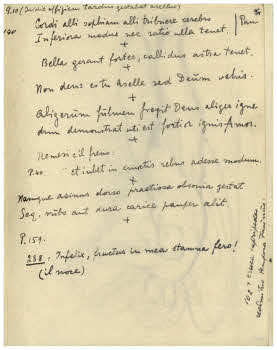 P.10 (Isidis effigiem tardus gestabat asellus)
Cordi alii sophiam alii tribuere cerebro
Inferiora modus nec ratio ulla tenet.
+
Bella gerant fortes, callidus astra tenet.
+
Non deus es tu Aselle sed Deum vehis.
+
Aligerum fulmen fregit Deus aliger igne
dum demonstrat uti est fortior ignis Amor.
+
Nemesi il freno.
P.40 et iubet in cunctis rebus adesse modum.
+
Namque asinus dorso pretiosa obsonia gestat
Seq. aut dura carice pauper alit.
+
P.159.
258. Infelix, fructus in mea damna fero!
(il noce)